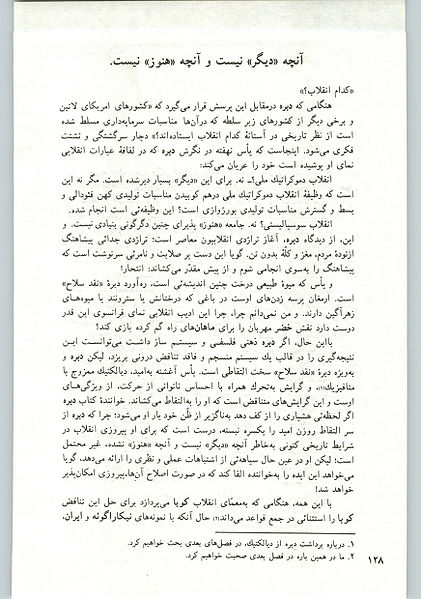 آنچه «دیگر» نیست و آنچه «هنوز» نیست.
«کدام انقلاب؟»
هنگامی که دبره درمقابل این پرسش قرار می‌گیرد که «کشورهای امریکای لاتین
و برخی دیگر از کشورهای زیر سلطه که درآن‌ها مناسبات سرمایه‌داری مسلط شده
است از نظر تاریخی در آستانهٔ کدام انقلاب ایستاده‌اند؟» دچار سرگشتگی و تشتت
فکری می‌شود. اینجاست که یأس نهفته در نگرش دبره که در لفافهٔ عبارات انقلابی
نمای او پوشیده است خود را عریان می‌کند:
انقلاب دموکراتیك ملی؟ـ نه. برای این «دیگر» بسیار دیرشده است. مگر نه این
است که وظیفهٔ انقلاب دموکراتیك ملی درهم کوبیدن مناسبات تولیدی کهن فئودالی و
بسط و گسترش مناسبات تولیدی بورژوازی است؟ این وظیفه‌ئی است انجام شده.
انقلاب سوسیالیستی؟ـ نه. جامعه «هنوز» پذیرای چنین دگرگونی بنیادی نیست. و
این، از دیدگاه دبره، آغاز تراژدی انقلابیون معاصر است: تراژدی جدائی پیشاهنگ
ازتودهٔ مردم، مغز و کلّهٔ بدون تن. گویا این دست پر صلابت و نامرئی سرنوشت است که
پیشاهنگ را به‌سوی انجامی شوم و از پیش مقدّر می‌کشاند: انتحار!
و یأس که میوهٔ طبیعی درخت چنین اندیشه‌ئی است، ره‌آورد دبرهٔ «نقد سلاح»
است. ارمغان پرسه زدن‌های اوست در باغی که درختانش یا سترونند و یا میوه‌های
زهرآگین دارند. و من نمی‌دانم چرا، چرا این ادیب انقلابی نمای فرانسوی این قدر
دوست دارد نقش خضر مهربان را برای ماهان‌های راه گم کرده بازی کند؟
بااین حال، اگر دبرهٔ ذهنی فلسفی و سیستم ساز داشت می‌توانست این
نتیجه‌گیری را در قالب یك سیستم منسجم و فاقد تناقض درونی بریزد، لیکن دبره و
به‌ویژه دبرهٔ «نقد سلاح» سخت التقاطی است. یأس آغشته به‌امید، دیالکتیك ممزوج با
متافیزیك(۱)، و گرایش به‌تحرك همراه با احساس ناتوانی از حرکت، از ویژگی‌های
اوست و این گرایش‌های متناقض است که او را به‌التقاط می‌کشاند. خوانندهٔ کتاب دبره
اگر لحظه‌ئی هشیاری را از کف دهد به‌ناگزیر از ظّن خود یار او می‌شود؛ چرا که دبره از
سر التقاط روزن امید را یکسره نبسته. درست است که برای او پیروزی انقلاب در
شرایط تاریخی کنونی به‌خاطر آنچه «دیگر» نیست و آنچه «هنوز» نشده، غیر محتمل
است؛ لیکن او در عین حال سیاهه‌ئی از اشتباهات عملی و نظری را ارائه می‌دهد، گویا
می‌خواهد این ایده را به‌خواننده القا کند که در صورت اصلاح آن‌ها،پیروزی امکان‌پذیر
خواهد شد!
با این همه، هنگامی که به‌معمّای انقلاب کوبا می‌پردازد برای حل این تناقض
کوبا را استثنائی در جمع قواعد می‌داند؛(۲) حال آنکه با نمونه‌های نیکاراگوئه و ایران،
۱. درباره برداشت دبره از دیالکتیك، در فصل‌های بعدی بحث خواهیم کرد.
۲. ما در همین باره در فصل بعدی صحبت خواهیم کرد.
۱۲۸